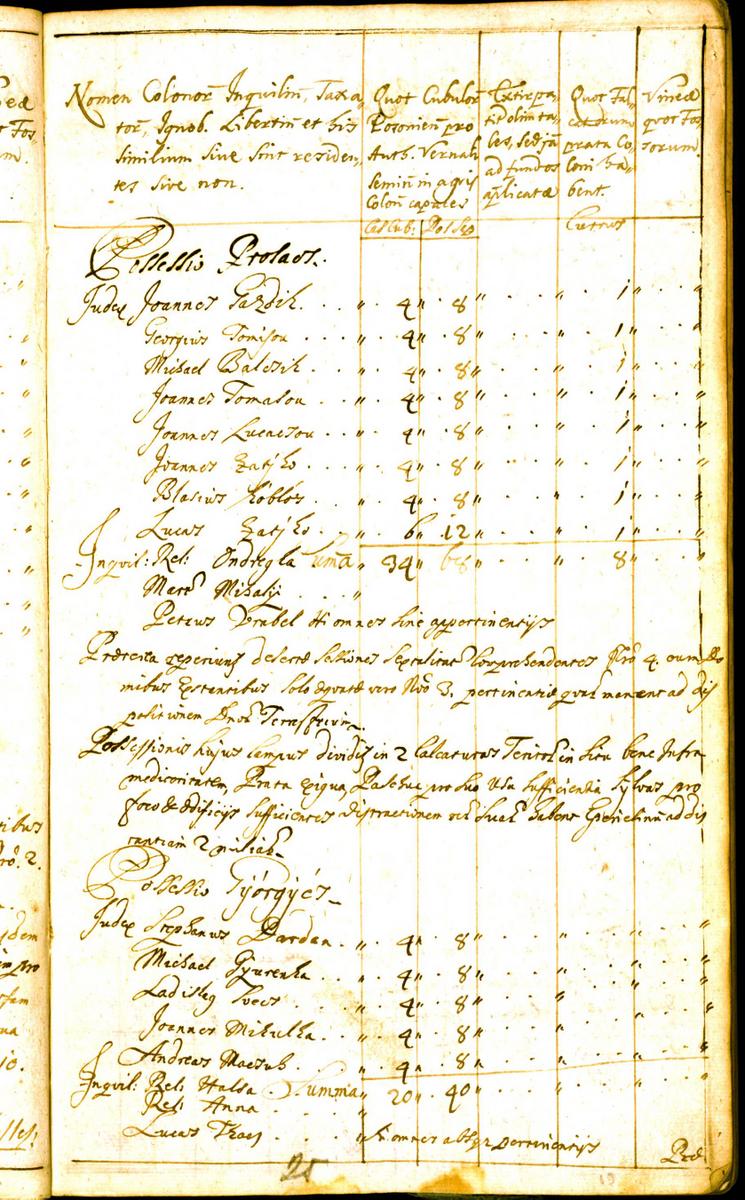 Nomen Colonor Inquilin, Taxa
tor, Ignob. Libertin et his
similium sive sint residen
tes sive non.
Quot Cubulor
Posonien pro
Auth. Vernali
Semin in agris
Colon capaces
Extirpa
tit olim ta
les, sed ja
ad fundos
applicatæ
Quot Fal
catorum
prata Co
loni ha
bent.
Vineæ
quot Fos
sorum.
Cub: Pos Currus
Possessio Prolaes.
Judex Joannes Gazdik . . " 4 " 8 " . . " 1 " . . "
Georgius Tomisou . . " 4 " 8 " . . " 1 " . . "
Michael Balczik . . " 4 " 8 " . . " 1 " . . "
Joannes Tomasou . . " 4 " 8 " . . " 1 " . . "
Joannes Lucacsou . . " 4 " 8 " . . " 1 " . . "
Joannes Zatyko . . " 4 " 8 " . . " 1 " . . "
Blasius Koblos . . " 4 " 8 " . . " 1 " . . "
Lucas Zatyko . . " 6 " 12 " . . " 1 " . . "
Inquil: Rel: Ondregka Suma " 34 " 68 " . . " 8 " . . "
Mart Mihalyi . . "
Petrus Vrabel Hi omnes sine appertinentijs
Præterea reperiunt desertæ Sessiones Nro 4. cum Do
mibus Extantibus Solo æquatæ vero Nro 3. pertinentiæ quar manent ad dis
positionem Dnor Terrestrium.
Possessionis hujus Campus dividit in 2 Calcaturas Territor in situ bene infra
mediocritatem, Prata exigua, Pascuu pro suo Usu Sufficientia Sylvas pro
foco & ædificijs Sufficientes distractionem rer suar habent Eperiessinum ad dis
tantiam 2 miliar
Possessio Györgyes
Judex Stephanus Dardan . " 4 " 8 " . . " . . " . . "
Michael Gyurenka . . " 4 " 8 " . . " . . " . . "
Ladislg Ivecs . . " 4 " 8 " . . " . . " . . "
Joannes Mikulka . . " 4 " 8 " . . " . . " . . "
Andreas Macsuk . . " 4 " 8 " . . " . . " . . "
Inquil: Rel: Halda . Summa " 20 " 40 " . . " . . " . . "
Rel: Anna . . "
Lucas . . " Hi omnes absq pertinentijs
Præ
25
19